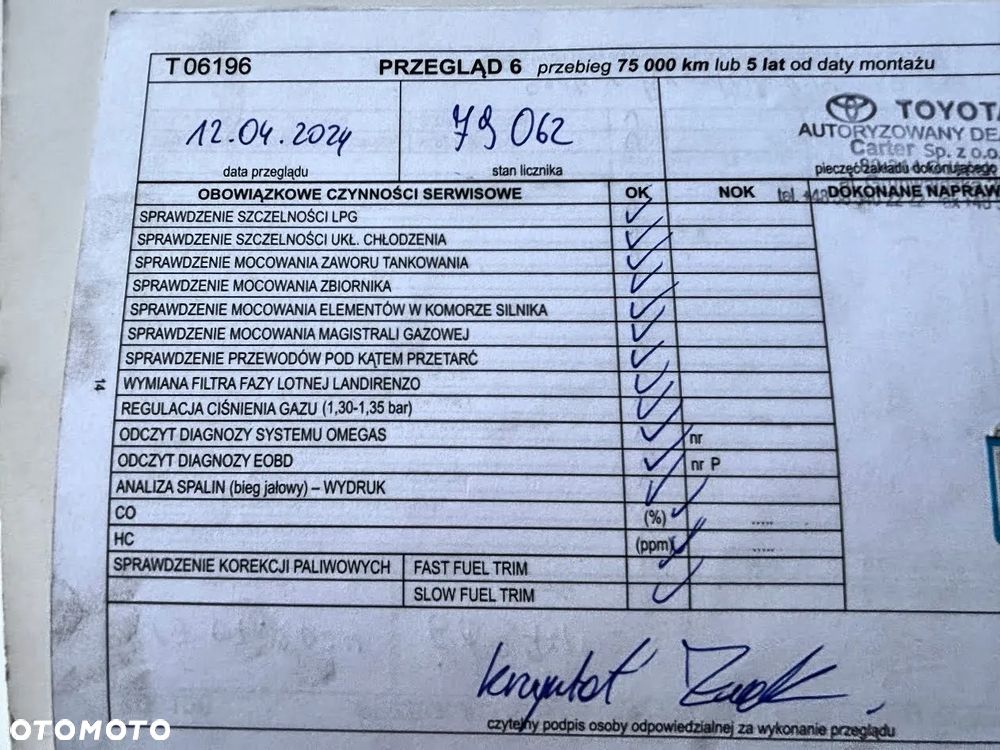 T 06196 PRZEGLĄD 6 przebieg 75 000 km lub 5 lat od daty montażu
12.04.2024 79 062 TOYOTA
AUTORYZOWANY DE
Carter Sp. z o.o.
data przeglądu stan licznika pieczęć zakładu dokonującego
OBOWIĄZKOWE CZYNNOŚCI SERWISOWE OK NOK DOKONANE NAPRAW
tel.
SPRAWDZENIE SZCZELNOŚCI LPG
SPRAWDZENIE SZCZELNOŚCI UKŁ. CHŁODZENIA
SPRAWDZENIE MOCOWANIA ZAWORU TANKOWANIA
SPRAWDZENIE MOCOWANIA ZBIORNIKA
SPRAWDZENIE MOCOWANIA ELEMENTÓW W KOMORZE SILNIKA
SPRAWDZENIE MOCOWANIA MAGISTRALI GAZOWEJ
SPRAWDZENIE PRZEWODÓW POD KĄTEM PRZETARĆ
14
WYMIANA FILTRA FAZY LOTNEJ LANDIRENZO
REGULACJA CIŚNIENIA GAZU (1,30-1,35 bar)
ODCZYT DIAGNOZY SYSTEMU OMEGAS nr
ODCZYT DIAGNOZY EOBD nr P
ANALIZA SPALIN (bieg jałowy) – WYDRUK
CO (%) .....
HC (ppm) .....
SPRAWDZENIE KOREKCJI PALIWOWYCH FAST FUEL TRIM
SLOW FUEL TRIM
Krzysztof
czytelny podpis osoby odpowiedzialnej za wykonanie przeglądu
OTOMOTO